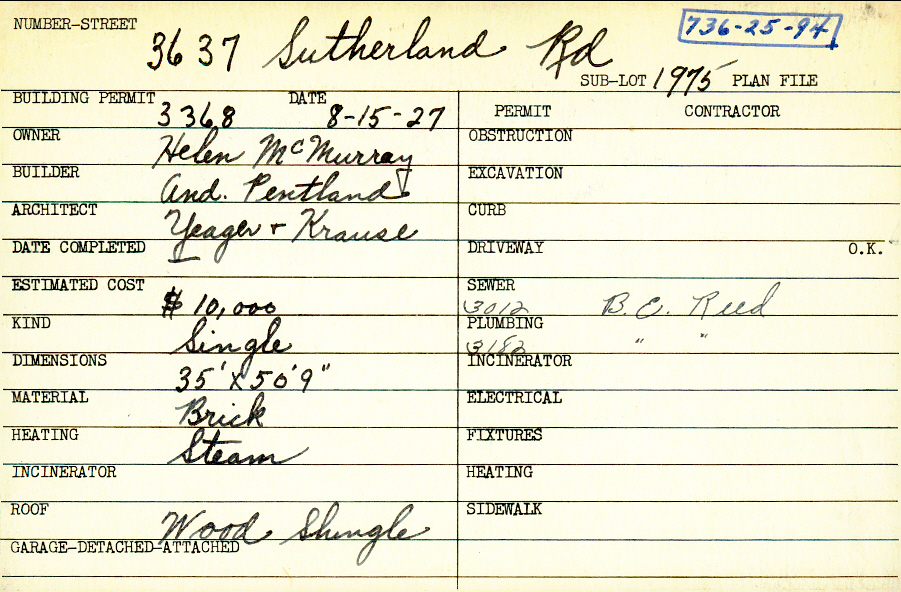 NUMBER-STREET 3637 Sutherland Rd 736-25-94
SUB-LOT 1975 PLAN FILE
BUILDING PERMIT 3368 DATE 8-15-27
OWNER Helen McMurray
BUILDER And. Pentland
ARCHITECT Yeager + Krause
DATE COMPLETED
ESTIMATED COST $10,000
KIND Single
DIMENSIONS 35' X 50'9"
MATERIAL Brick
HEATING Steam
INCINERATOR
ROOF Wood Shingle
GARAGE-DETACHED-ATTACHED
PERMIT CONTRACTOR
OBSTRUCTION
EXCAVATION
CURB
DRIVEWAY O.K.
SEWER 3012 B.E. Reed
PLUMBING 3182 " "
INCINERATOR
ELECTRICAL
FIXTURES
HEATING
SIDEWALK